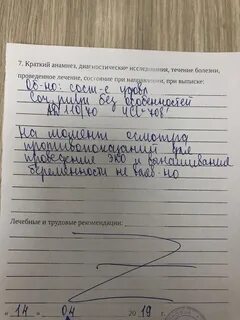 7. Краткий анамнез, диагностические исследования, течение болезни,
проведенное лечение, состояние при направлении, при выписке:
Об-но: сост-е удовл
Соч, ритм без особенностей
АД 110/70 ЧСС-70в'
На момент осмотра
противопоказаний для
проведения ЭКО и вынашивания
беременности не выяв-но
Лечебные и трудовые рекомендации:
« 14 » 04 2019 г.